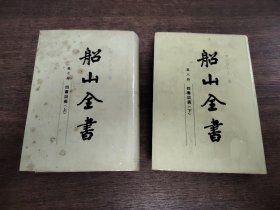 船山全書
第七册 四書訓義（上）
船山全書
第八册 四書訓義（下）